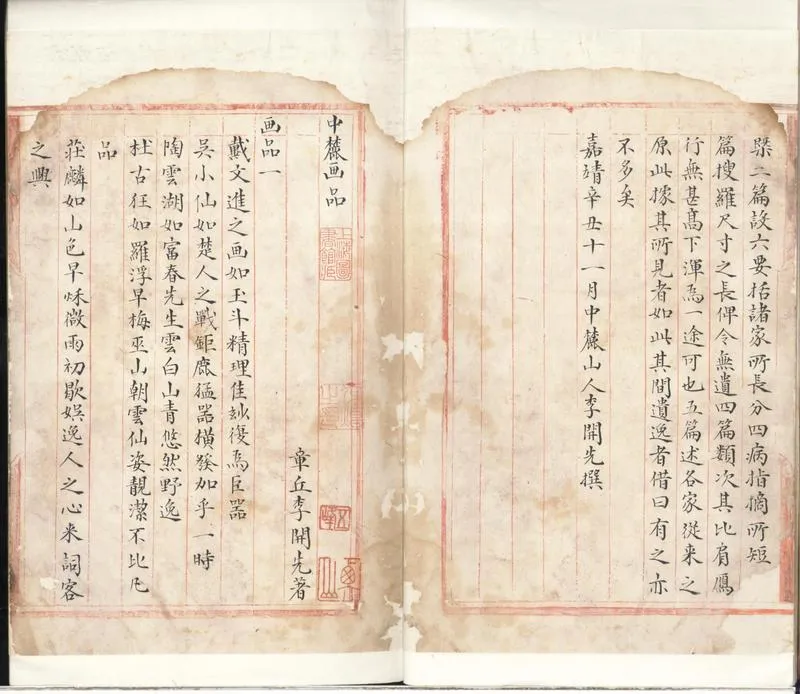 槩二篇設六要括諸家所長分四病指摘所短三
篇搜羅尺寸之長俾令無遺四篇類次其比肩鴈
行無甚髙下渾為一途可也五篇述各家從来之
原此據其所見者如此其間遺逸者借曰有之亦
不多矣
嘉靖辛丑十一月中麓山人李開先撰
中麓画品
章丘李開先著
画品一
戴文進之画如玉斗精理佳妙復為巨器
吳小仙如楚人之戰鉅鹿猛噐横發加乎一時
陶雲湖如富春先生雲白山青悠然野逸
杜古狂如羅浮早梅巫山朝雲仙姿靚潔不比凡
品
莊麟如山色早秌微雨初歇娯逸人之心来詞客
之興
上海圖書館藏